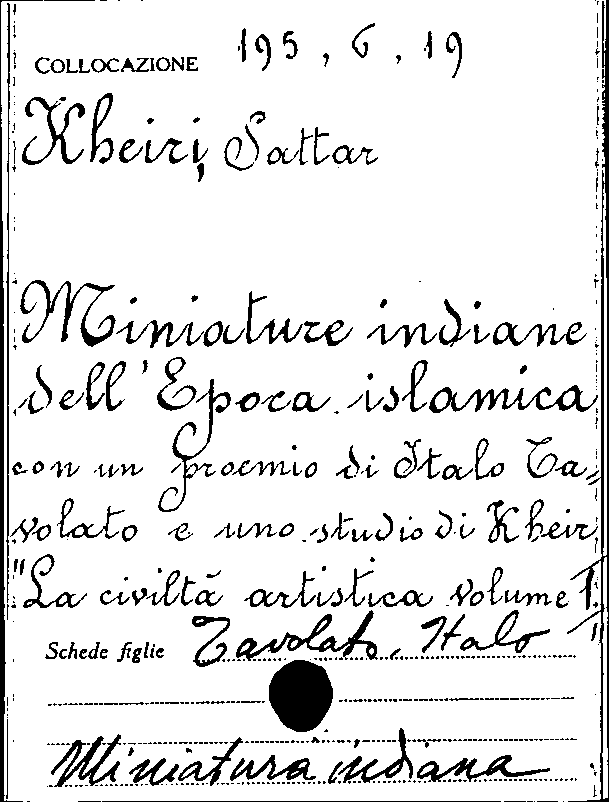 COLLOCAZIONE 195, 6, 19
Kheiri, Sattar
Miniature indiane
dell'Epoca islamica
con un proemio di Italo Ta=
volato e uno studio di Kheiri
"La civiltà artistica volume I."
Schede figlie Tavolato, Italo
Miniatura indiana